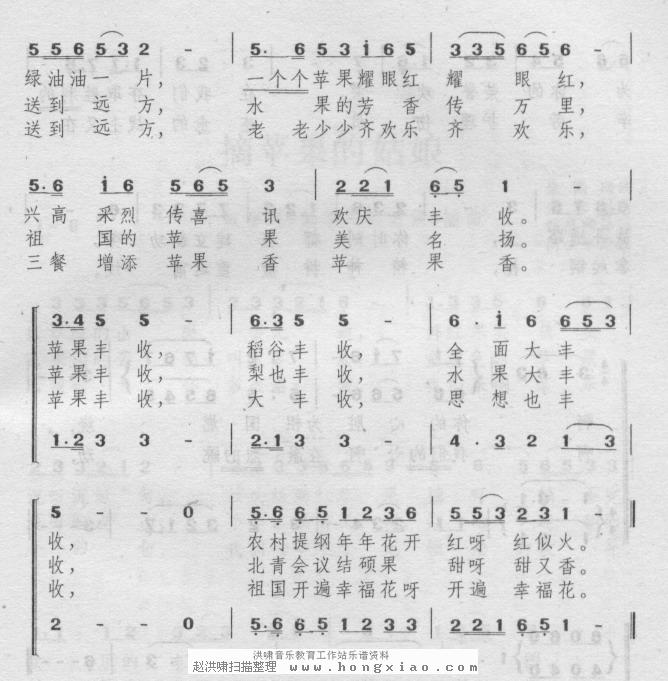 5 5 6 5 3 2 - | 5. 6 5 3 i 6 5 | 3 3 5 6 5 6 -
绿油油一 片, 一个个苹果耀眼红 耀 眼 红,
送到 远 方, 水 果的芳 香 传 万 里,
送到 远 方, 老 老少少齐欢乐 齐 欢 乐,
5. 6 i 6 5 6 5 3 | 2 2 1 6. 5 1 -
兴高 采烈 传喜 讯 欢庆 丰 收。
祖 国的 苹 果 美 名 扬。
三餐 增添 苹果 香 苹 果 香。
3. 4 5 5 - | 6. 3 5 5 - | 6 . i 6 6 5 3
苹果丰 收, 稻谷丰 收, 全 面大丰
苹果丰 收, 梨也丰 收, 水 果大丰
苹果丰 收, 大 丰 收, 思 想也丰
1. 2 3 3 - | 2. 1 3 3 - | 4 . 3 2 1 3
5 - - 0 | 5. 6 6 5 1 2 3 6 | 5 5 3 2 3 1 -
收, 农村提纲年年花开 红呀 红似火。
收, 北青会议结硕果 甜呀 甜又香。
收, 祖国开遍幸福花呀 开遍 幸福花。
2 - - 0 | 5. 6 6 5 1 2 3 3 | 2 2 1 6 5 1 -
洪啸音乐教育工作站乐谱资料
赵洪啸扫描整理 www.hongxiao.com